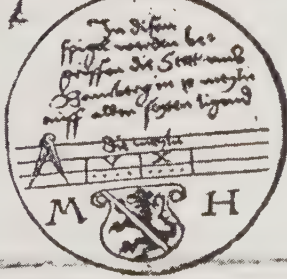 In disem
spigel werden be=
griffen die Stett umb
Bamberg in
auff allen seyten ligend
Die
V X
M H